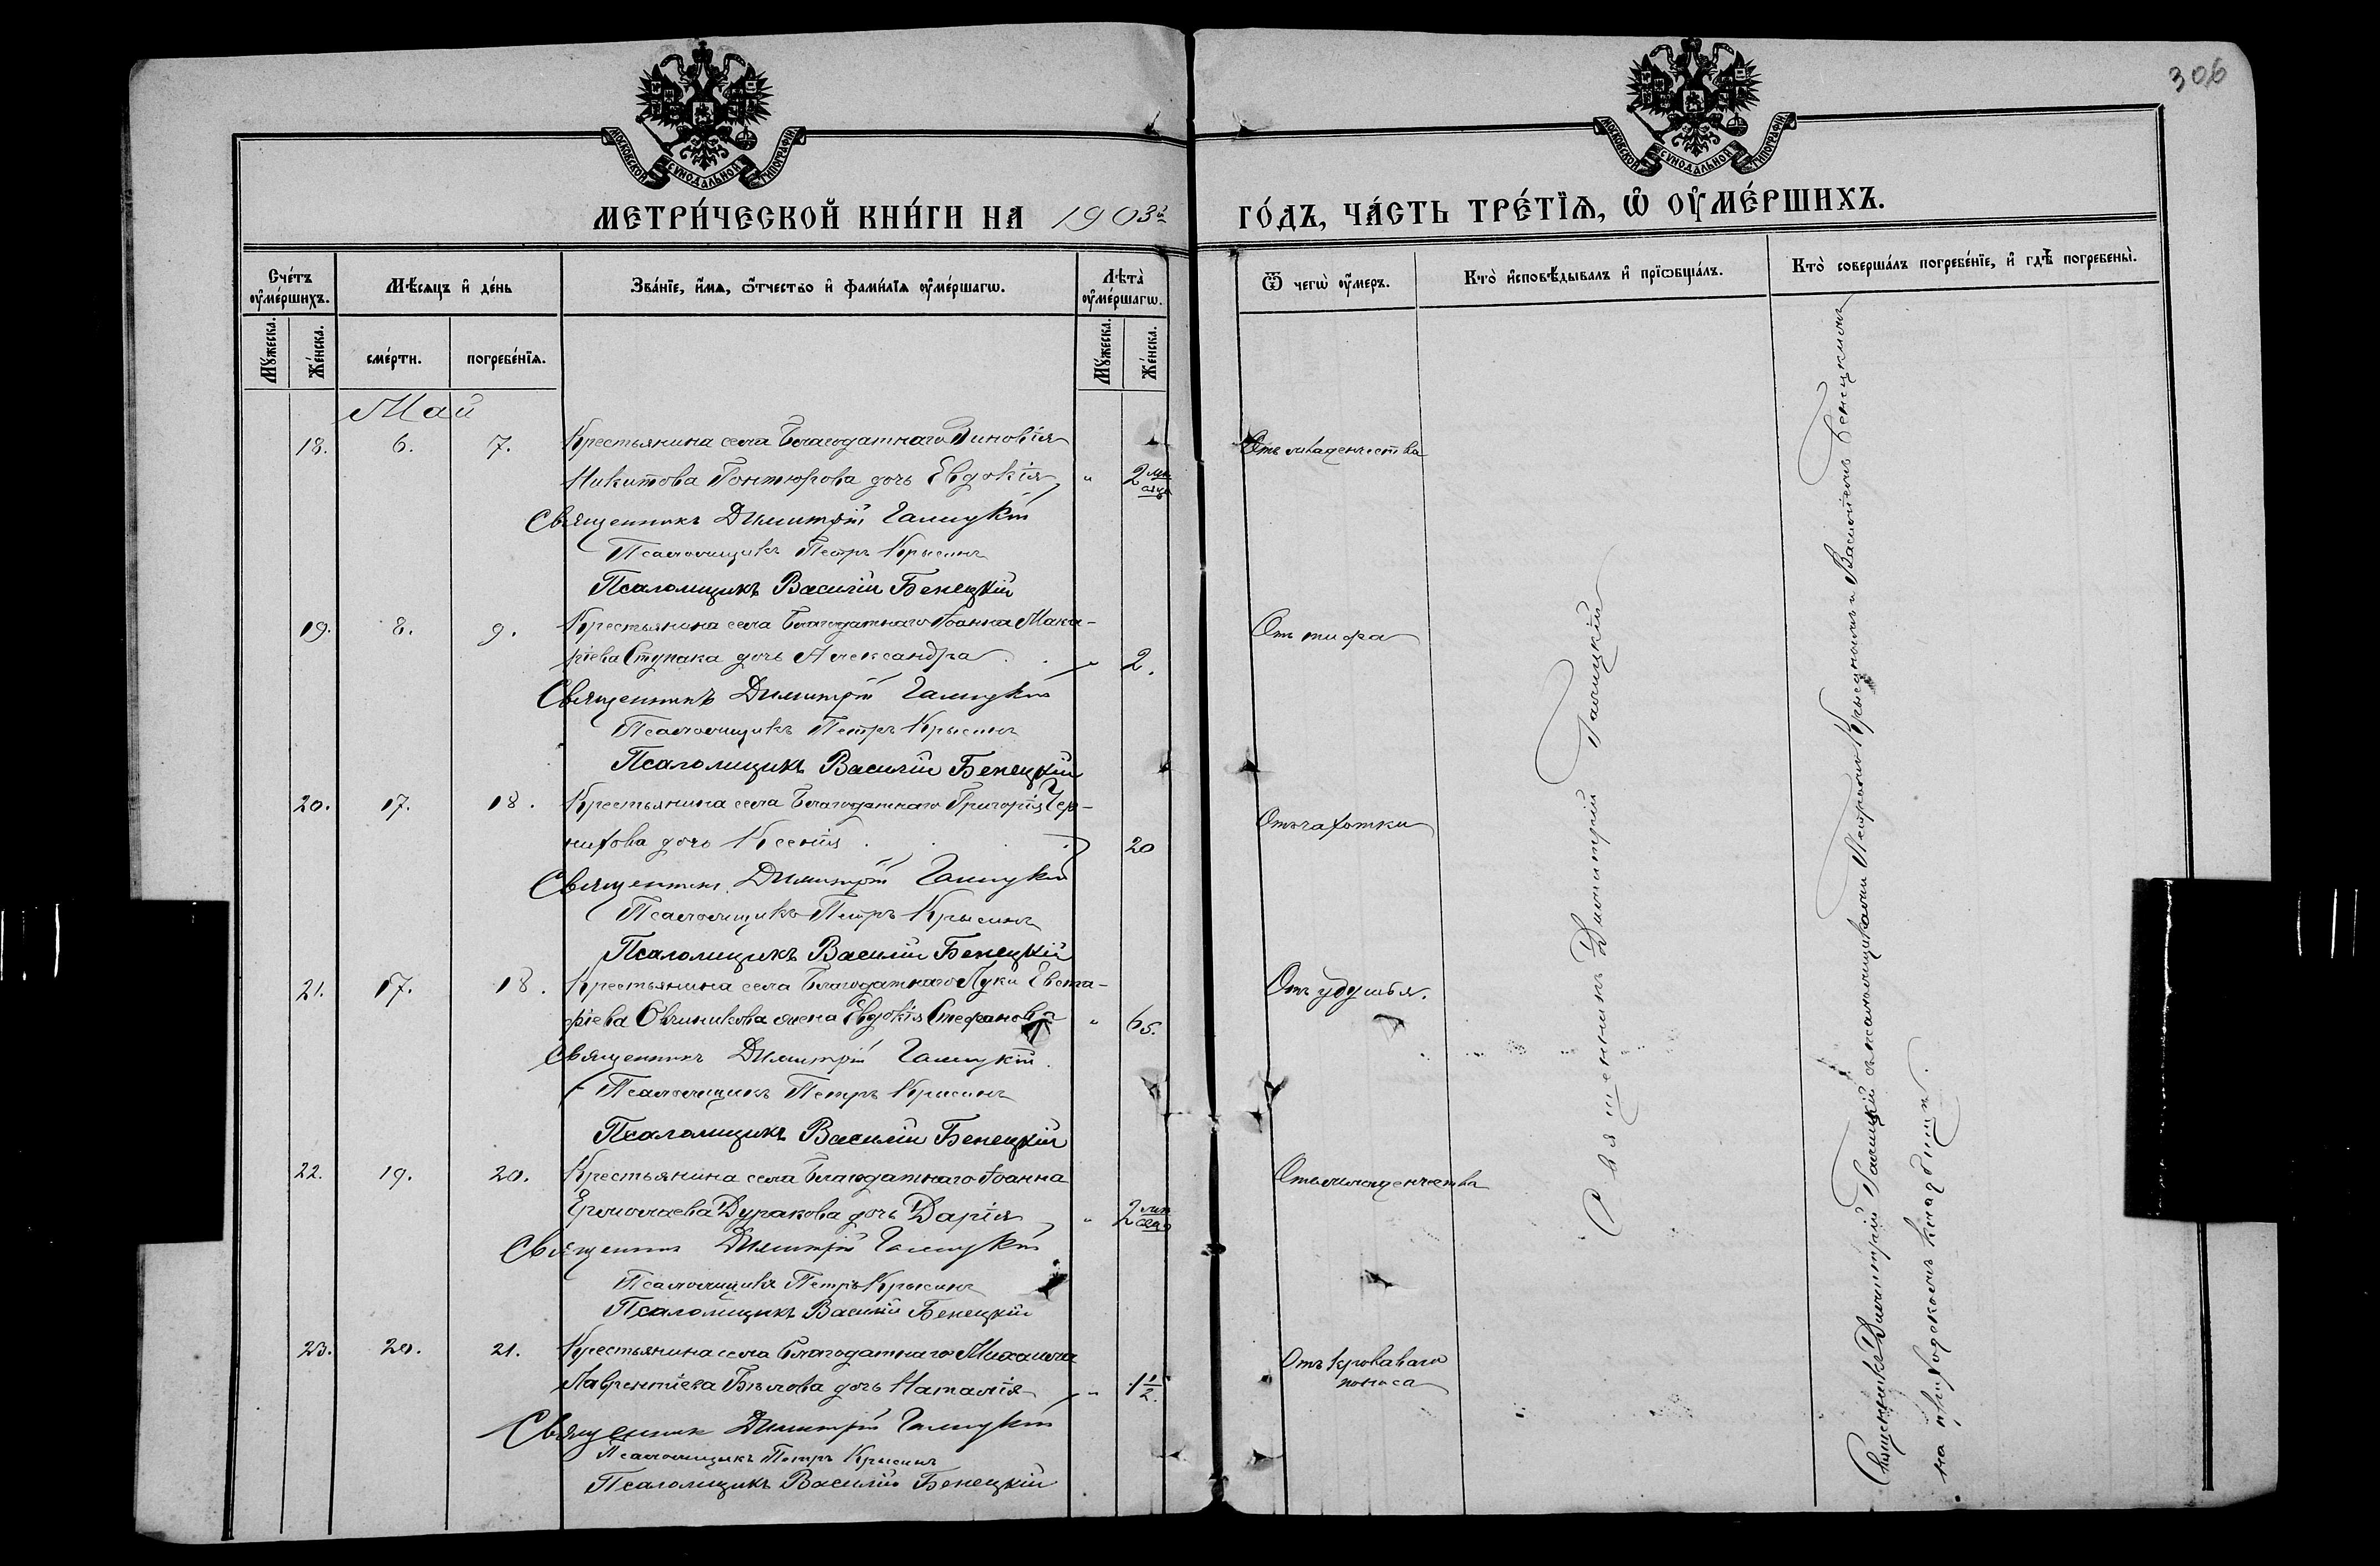 306
МОСКОВСКОЙ СѴНОДАЛЬНОЙ ТИПОГРАФІИ
МОСКОВСКОЙ СѴНОДАЛЬНОЙ ТИПОГРАФІИ
МЕТРИ́ЧЕСКОЙ КНИ́ГИ НА 1903й ГО́ДЪ, ЧА́СТЬ ТРЕ́ТЇѦ, Ѡ ОУ҆МЕ́РШИХЪ.
Сче́тъ оу҆ме́ршихъ.
Мѣ́сѧцъ и҆ де́нь
Зва́нїе, и҆́мѧ, ѻ҆́тчество и҆ фами́лїѧ оу҆ме́ршагѡ.
Лѣ́та̀ оу҆ме́ршагѡ.
Мꙋ́жеска.
Же́нска.
сме́рти.
погребе́нїѧ.
Мꙋ́жеска.
Же́нска.
Ѿ чегѡ̀ оу҆́меръ.
Кто̀ и҆сповѣ́дывалъ и҆ прїѡбща́лъ.
Кто̀ соверша́лъ погребе́нїе, и҆ гдѣ̀ погребены̀.
Май
18. 6. 7. Крестьянина села Благодатнаго Зиновія
Никитова Гонтюрова дочь Евдокія " 2 мѣсяца
Отъ младенчества
Священникъ Димитрій Галицкій
Псаломщикъ Петръ Крысинъ
Псаломщикъ Василій Бенецкій
19. 8. 9. Крестьянина села Благодатнаго Іоанна Мака-
ріева Ступака дочь Александра " 2.
Отъ тифа
Священникъ Димитрій Галицкій
Псаломщикъ Петръ Крысинъ
Псаломщикъ Василій Бенецкій
20. 17. 18. Крестьянина села Благодатнаго Григорія Чер-
нихова дочь Ксенія 20
Отъ чахотки
Священникъ Димитрій Галицкій
Псаломщикъ Петръ Крысинъ
Псаломщикъ Василій Бенецкій
21. 17. 18. Крестьянина села Благодатнаго Луки Евста-
фіева Овчиникова жена Евдокія Стефанова " 65.
Отъ удушья.
Священникъ Димитрій Галицкій
Псаломщикъ Петръ Крысинъ
Псаломщикъ Василій Бенецкій
22. 19. 20. Крестьянина села Благодатнаго Іоанна
Ермолаева Дуракова дочь Дарія " 2 мѣсяца
Отъ младенчества
Священникъ Димитрій Галицкій
Псаломщикъ Петръ Крысинъ
Псаломщикъ Василій Бенецкій
23. 20. 21. Крестьянина села Благодатнаго Михаила
Лаврентіева Бѣлова дочь Наталія " 1 1/2.
Отъ кроваваго
поноса
Священникъ Димитрій Галицкій
Псаломщикъ Петръ Крысинъ
Псаломщикъ Василій Бенецкій
Священникъ Димитрій Галицкій
Священникъ Димитрій Галицкій съ псаломщиками Петромъ Крысинымъ и Василіемъ Бенецкимъ
на приходскомъ кладбищѣ.